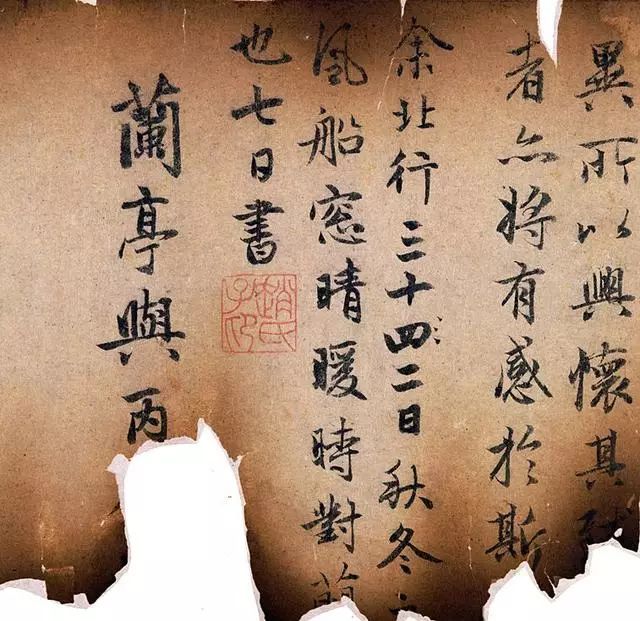 異所以興懷其
者亦將有感於斯
余北行三十四二日秋冬
風船窓晴暖時對
也七日書
趙氏子印
蘭亭與丙